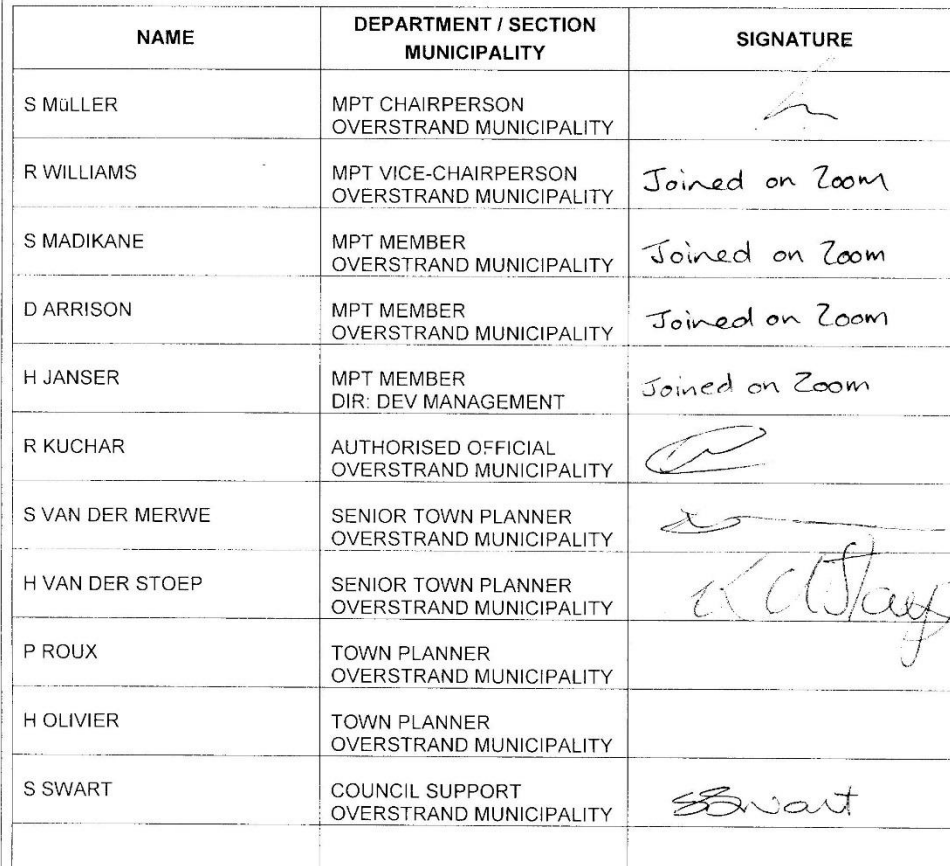 NAME
DEPARTMENT / SECTION
MUNICIPALITY
SIGNATURE
S MüLLER
MPT CHAIRPERSON
OVERSTRAND MUNICIPALITY
R WILLIAMS
MPT VICE-CHAIRPERSON
OVERSTRAND MUNICIPALITY
Joined on Zoom
S MADIKANE
MPT MEMBER
OVERSTRAND MUNICIPALITY
Joined on Zoom
D ARRISON
MPT MEMBER
OVERSTRAND MUNICIPALITY
Joined on Zoom
H JANSER
MPT MEMBER
DIR: DEV MANAGEMENT
Joined on Zoom
R KUCHAR
AUTHORISED OFFICIAL
OVERSTRAND MUNICIPALITY
S VAN DER MERWE
SENIOR TOWN PLANNER
OVERSTRAND MUNICIPALITY
H VAN DER STOEP
SENIOR TOWN PLANNER
OVERSTRAND MUNICIPALITY
P ROUX
TOWN PLANNER
OVERSTRAND MUNICIPALITY
H OLIVIER
TOWN PLANNER
OVERSTRAND MUNICIPALITY
S SWART
COUNCIL SUPPORT
OVERSTRAND MUNICIPALITY
SSwart